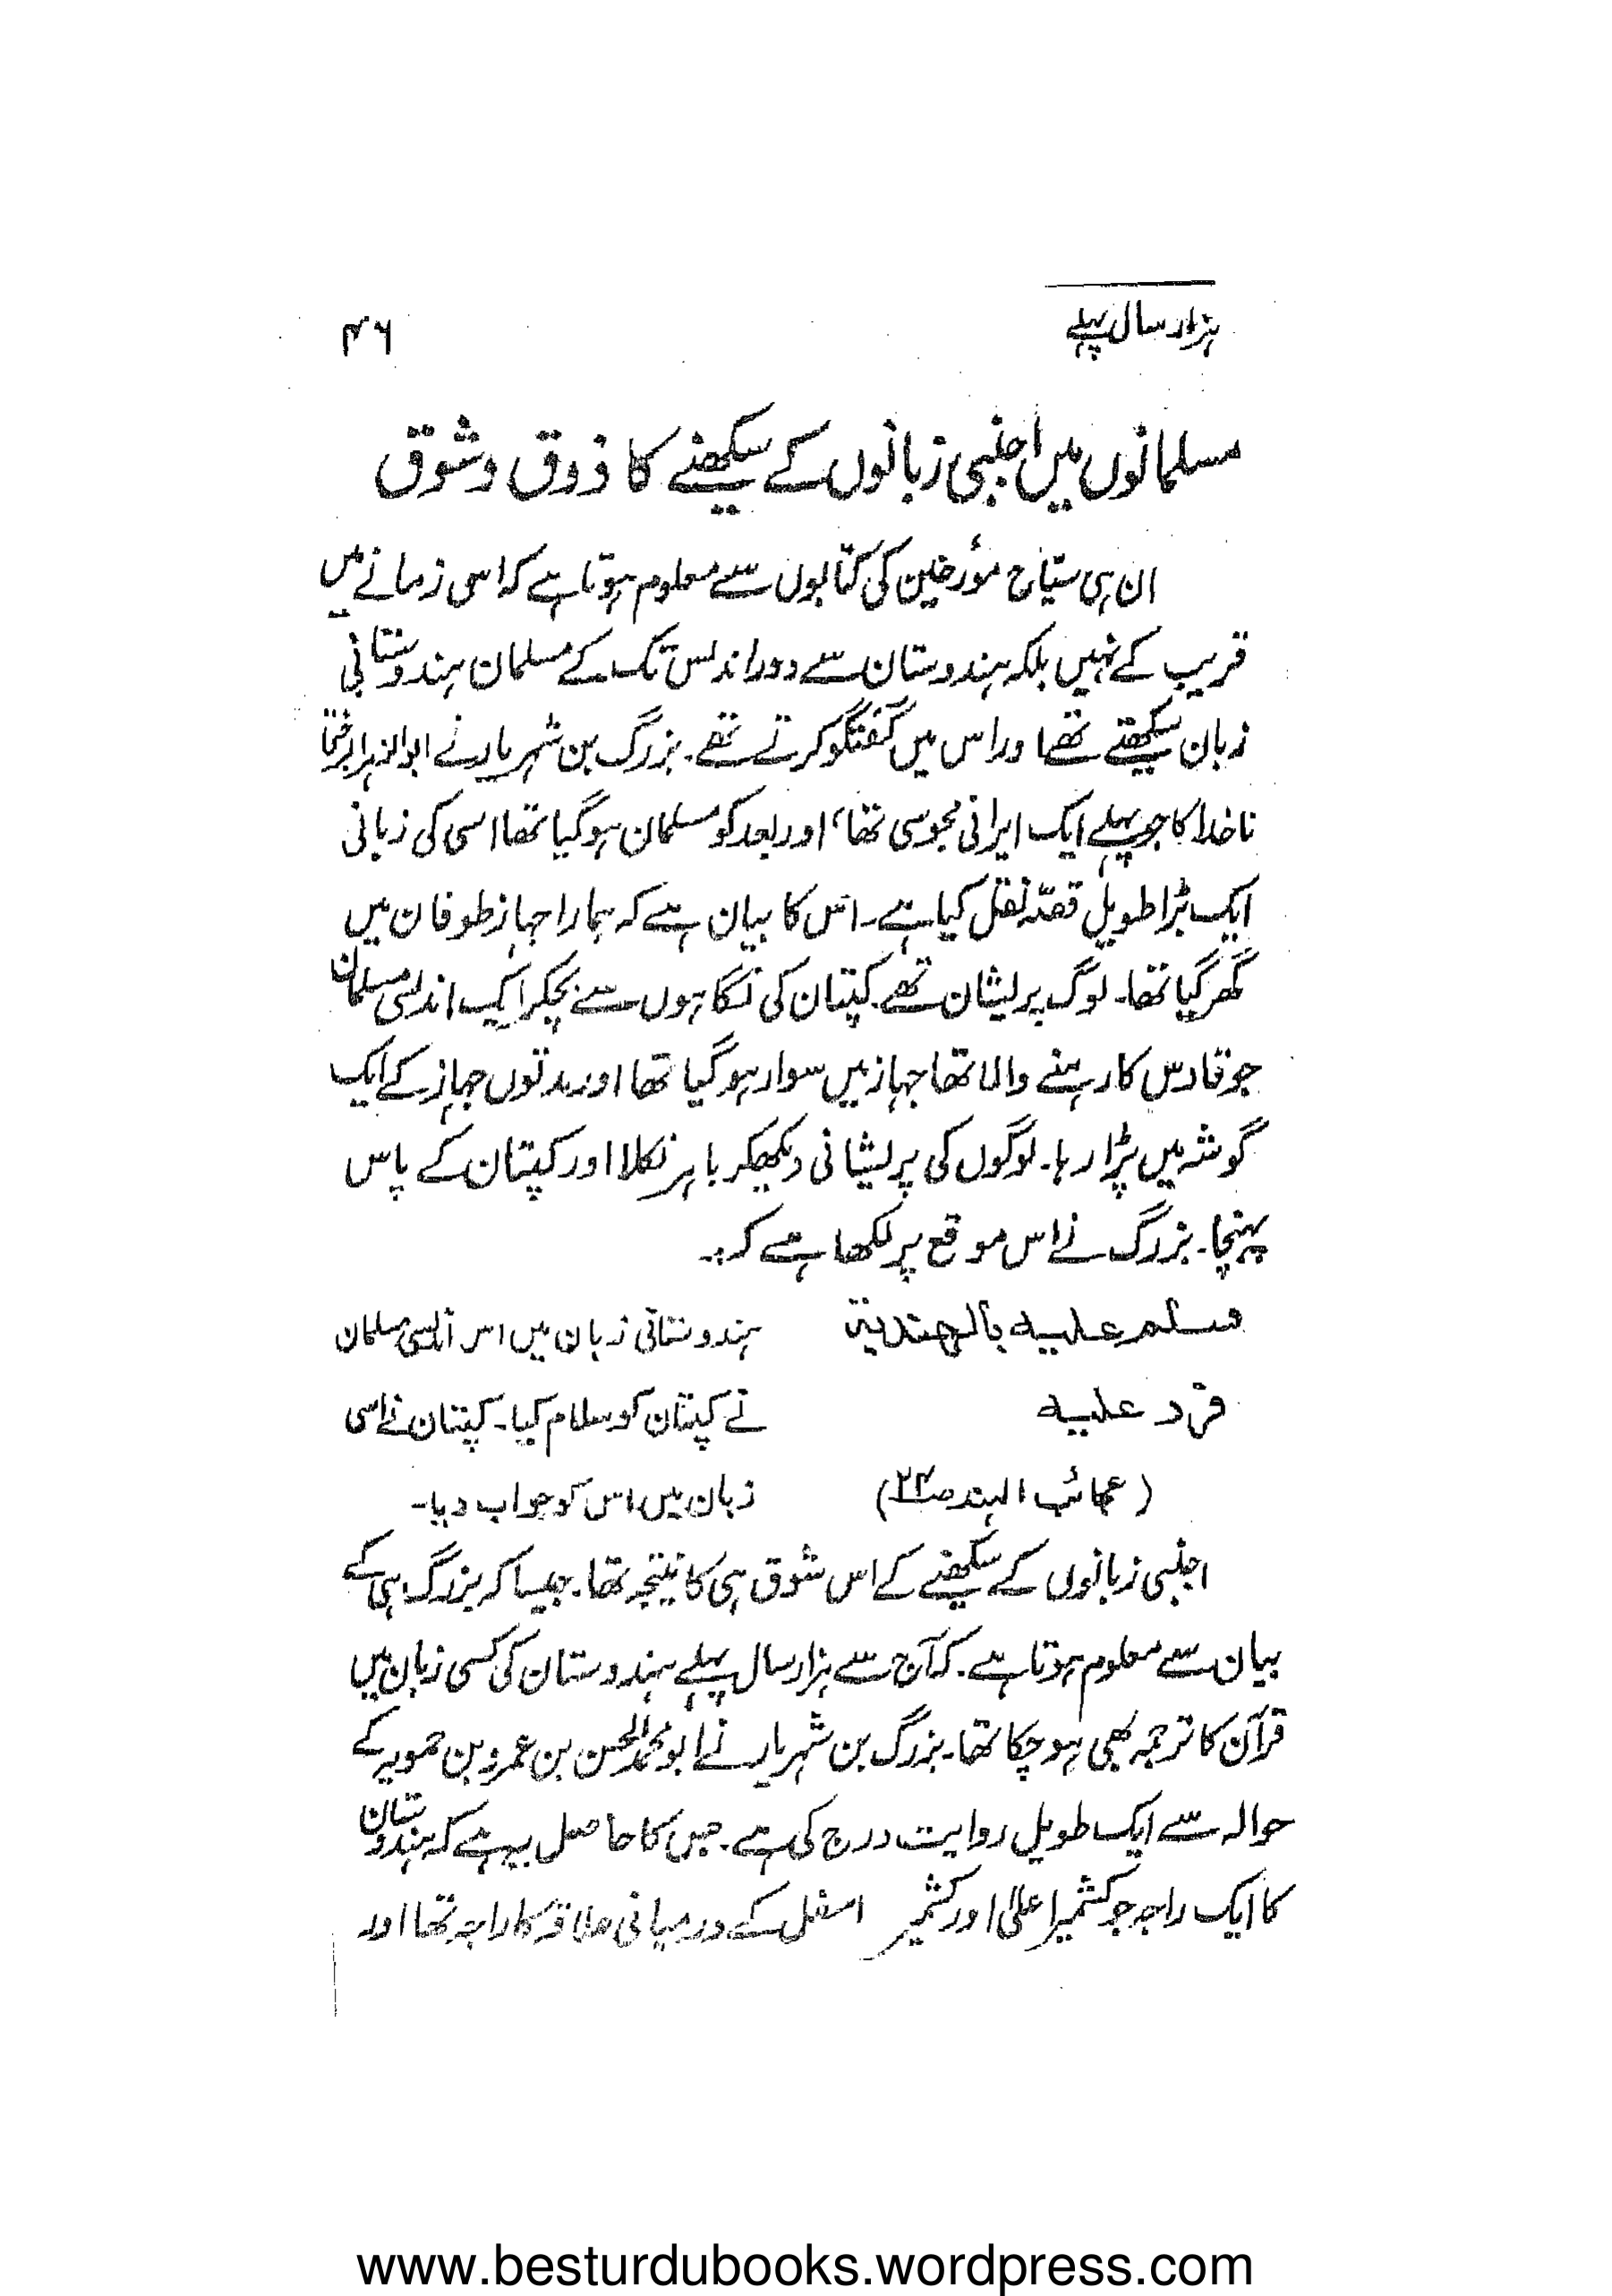 ہزار سال پہلے
۴۶
مسلمانوں میں اجنبی زبانوں کے سیکھنے کا ذوق و شوق
ان ہی سیّاح مؤرخین کی کتابوں سے معلوم ہوتا ہے کہ اسی زمانے میں
قریب کے نہیں بلکہ ہندوستان سے دور اندلس تک کے مسلمان ہندوستانی
زبان سیکھتے تھے اور اس میں گفتگو کرتے تھے۔ بزرگ بن شہریار نے ابوالزہر
ناخدا کا جو پہلے ایک ایرانی مجوسی تھا، اور بعد کو مسلمان ہوگیا تھا اسی کی زبانی
ایک بڑا طویل قصّہ نقل کیا ہے۔ اس کا بیان ہے کہ ہمارا جہاز طوفان میں
گھر گیا تھا۔ لوگ پریشان تھے۔ کپتان کی نگاہوں سے بچکر ایک اندلسی مسلمان
جو قادس کا رہنے والا تھا جہاز میں سوار ہوگیا تھا اور مدتوں جہاز کے ایک
گوشہ میں پڑا رہا۔ لوگوں کی پریشانی دیکھکر باہر نکلا اور کپتان کے پاس
پہنچا۔ بزرگ نے اس موقع پر لکھا ہے کہ:۔
فسلم علیه بالهندیة
فرد علیه
(عجائب الہند صـ۲۳)
ہندوستانی زبان میں اس اندلسی مسلمان
نے کپتان کو سلام کیا۔ کپتان نے اسی
زبان میں اس کو جواب دیا۔
اجنبی زبانوں کے سیکھنے کے اس شوق ہی کا نتیجہ تھا۔ جیسا کہ بزرگ ہی کے
بیان سے معلوم ہوتا ہے۔ کہ آج سے ہزار سال پہلے ہندوستان کی کسی زبان میں
قرآن کا ترجمہ بھی ہو چکا تھا۔ بزرگ بن شہریار نے ابو محمد الحسن بن عمرو بن حمویہ کے
حوالہ سے ایک طویل روایت درج کی ہے۔ جس کا حاصل یہ ہے کہ ہندوستان
کا ایک راجہ جو کشمیر اعلیٰ اور کشمیر اسفل کے درمیانی علاقہ کا راجہ تھا اور
www.besturdubooks.wordpress.com